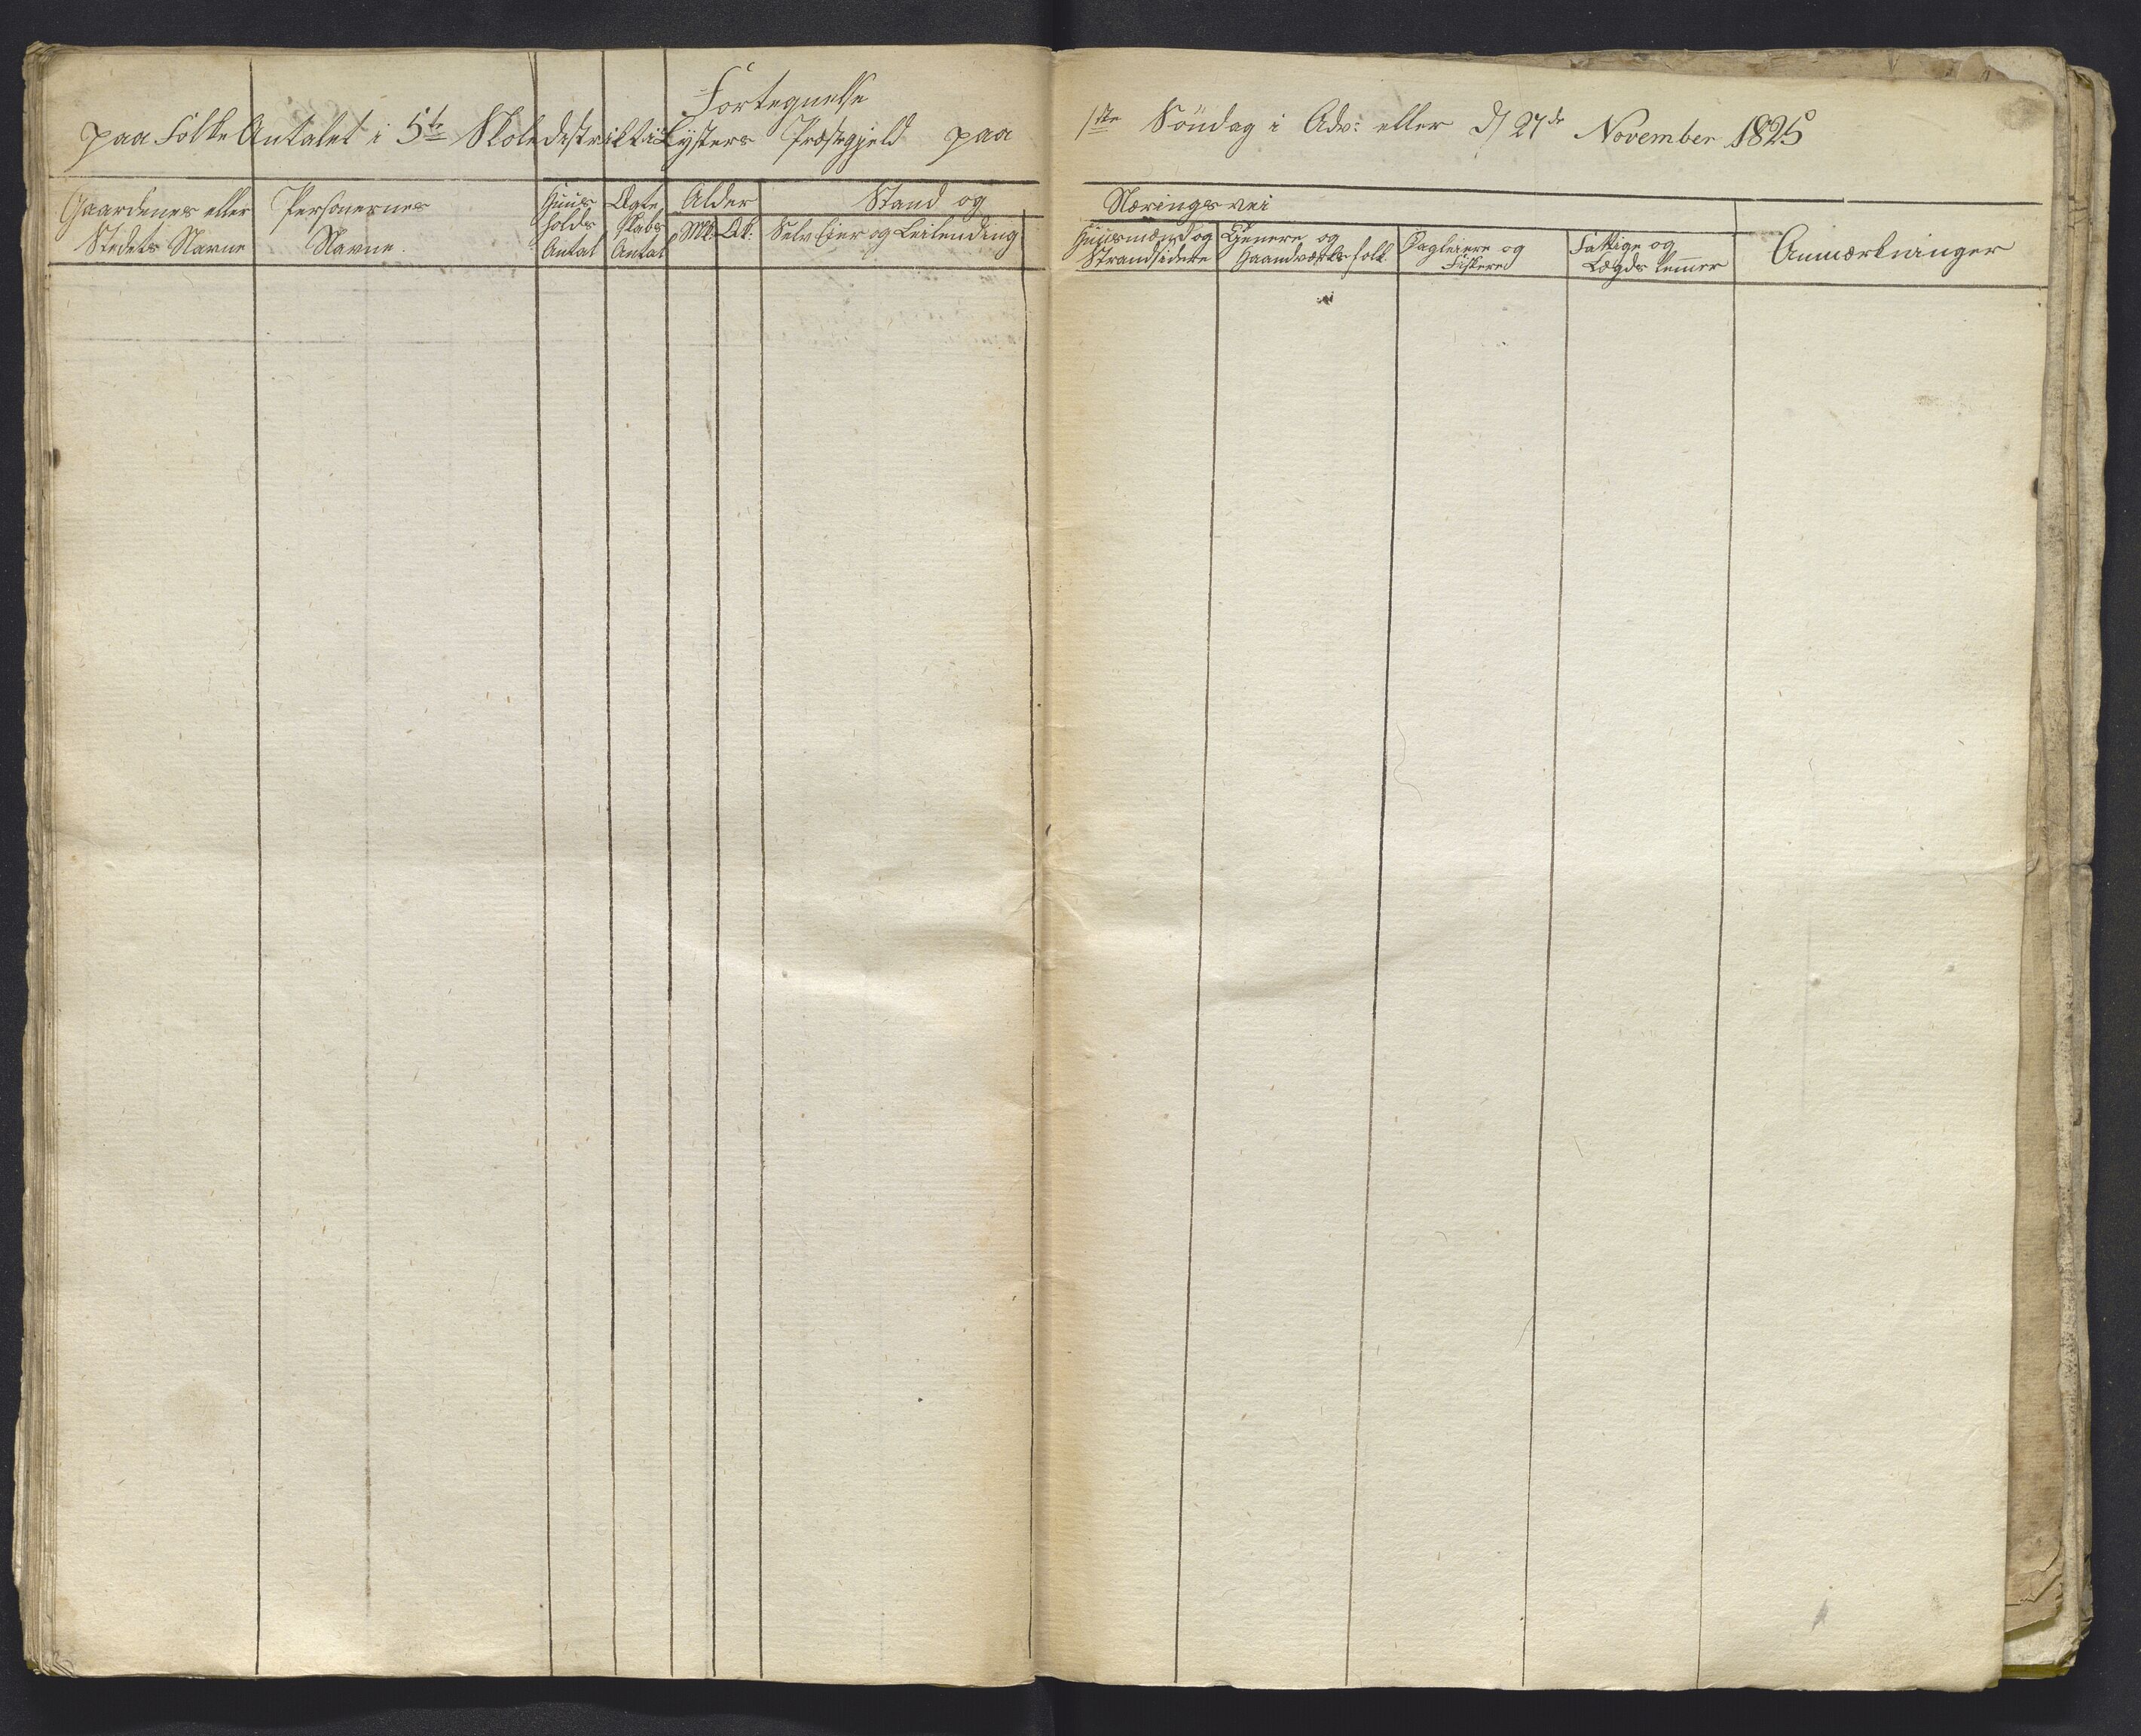 Fortegnelse
paa Folke Antalet i 5te Skoledistrikt i Lysters Præstegjeld paa 1ste Söndag i Adv: eller d/ 27de November 1825
Gaardenes eller
Stedets Navne
Personernes
Navne.
Huus
holds
Antal
Ægte
skabs
Antal
Alder
Mk:
Qk:
Stand og Næringsvei
Selv Eier og Leilending
Huusmænd og
Strandsidere
Tjenere og
Haandværksfolk
Dagleiere og
Fiskere
Fattige og
Lægds lemer
Anmærkninger